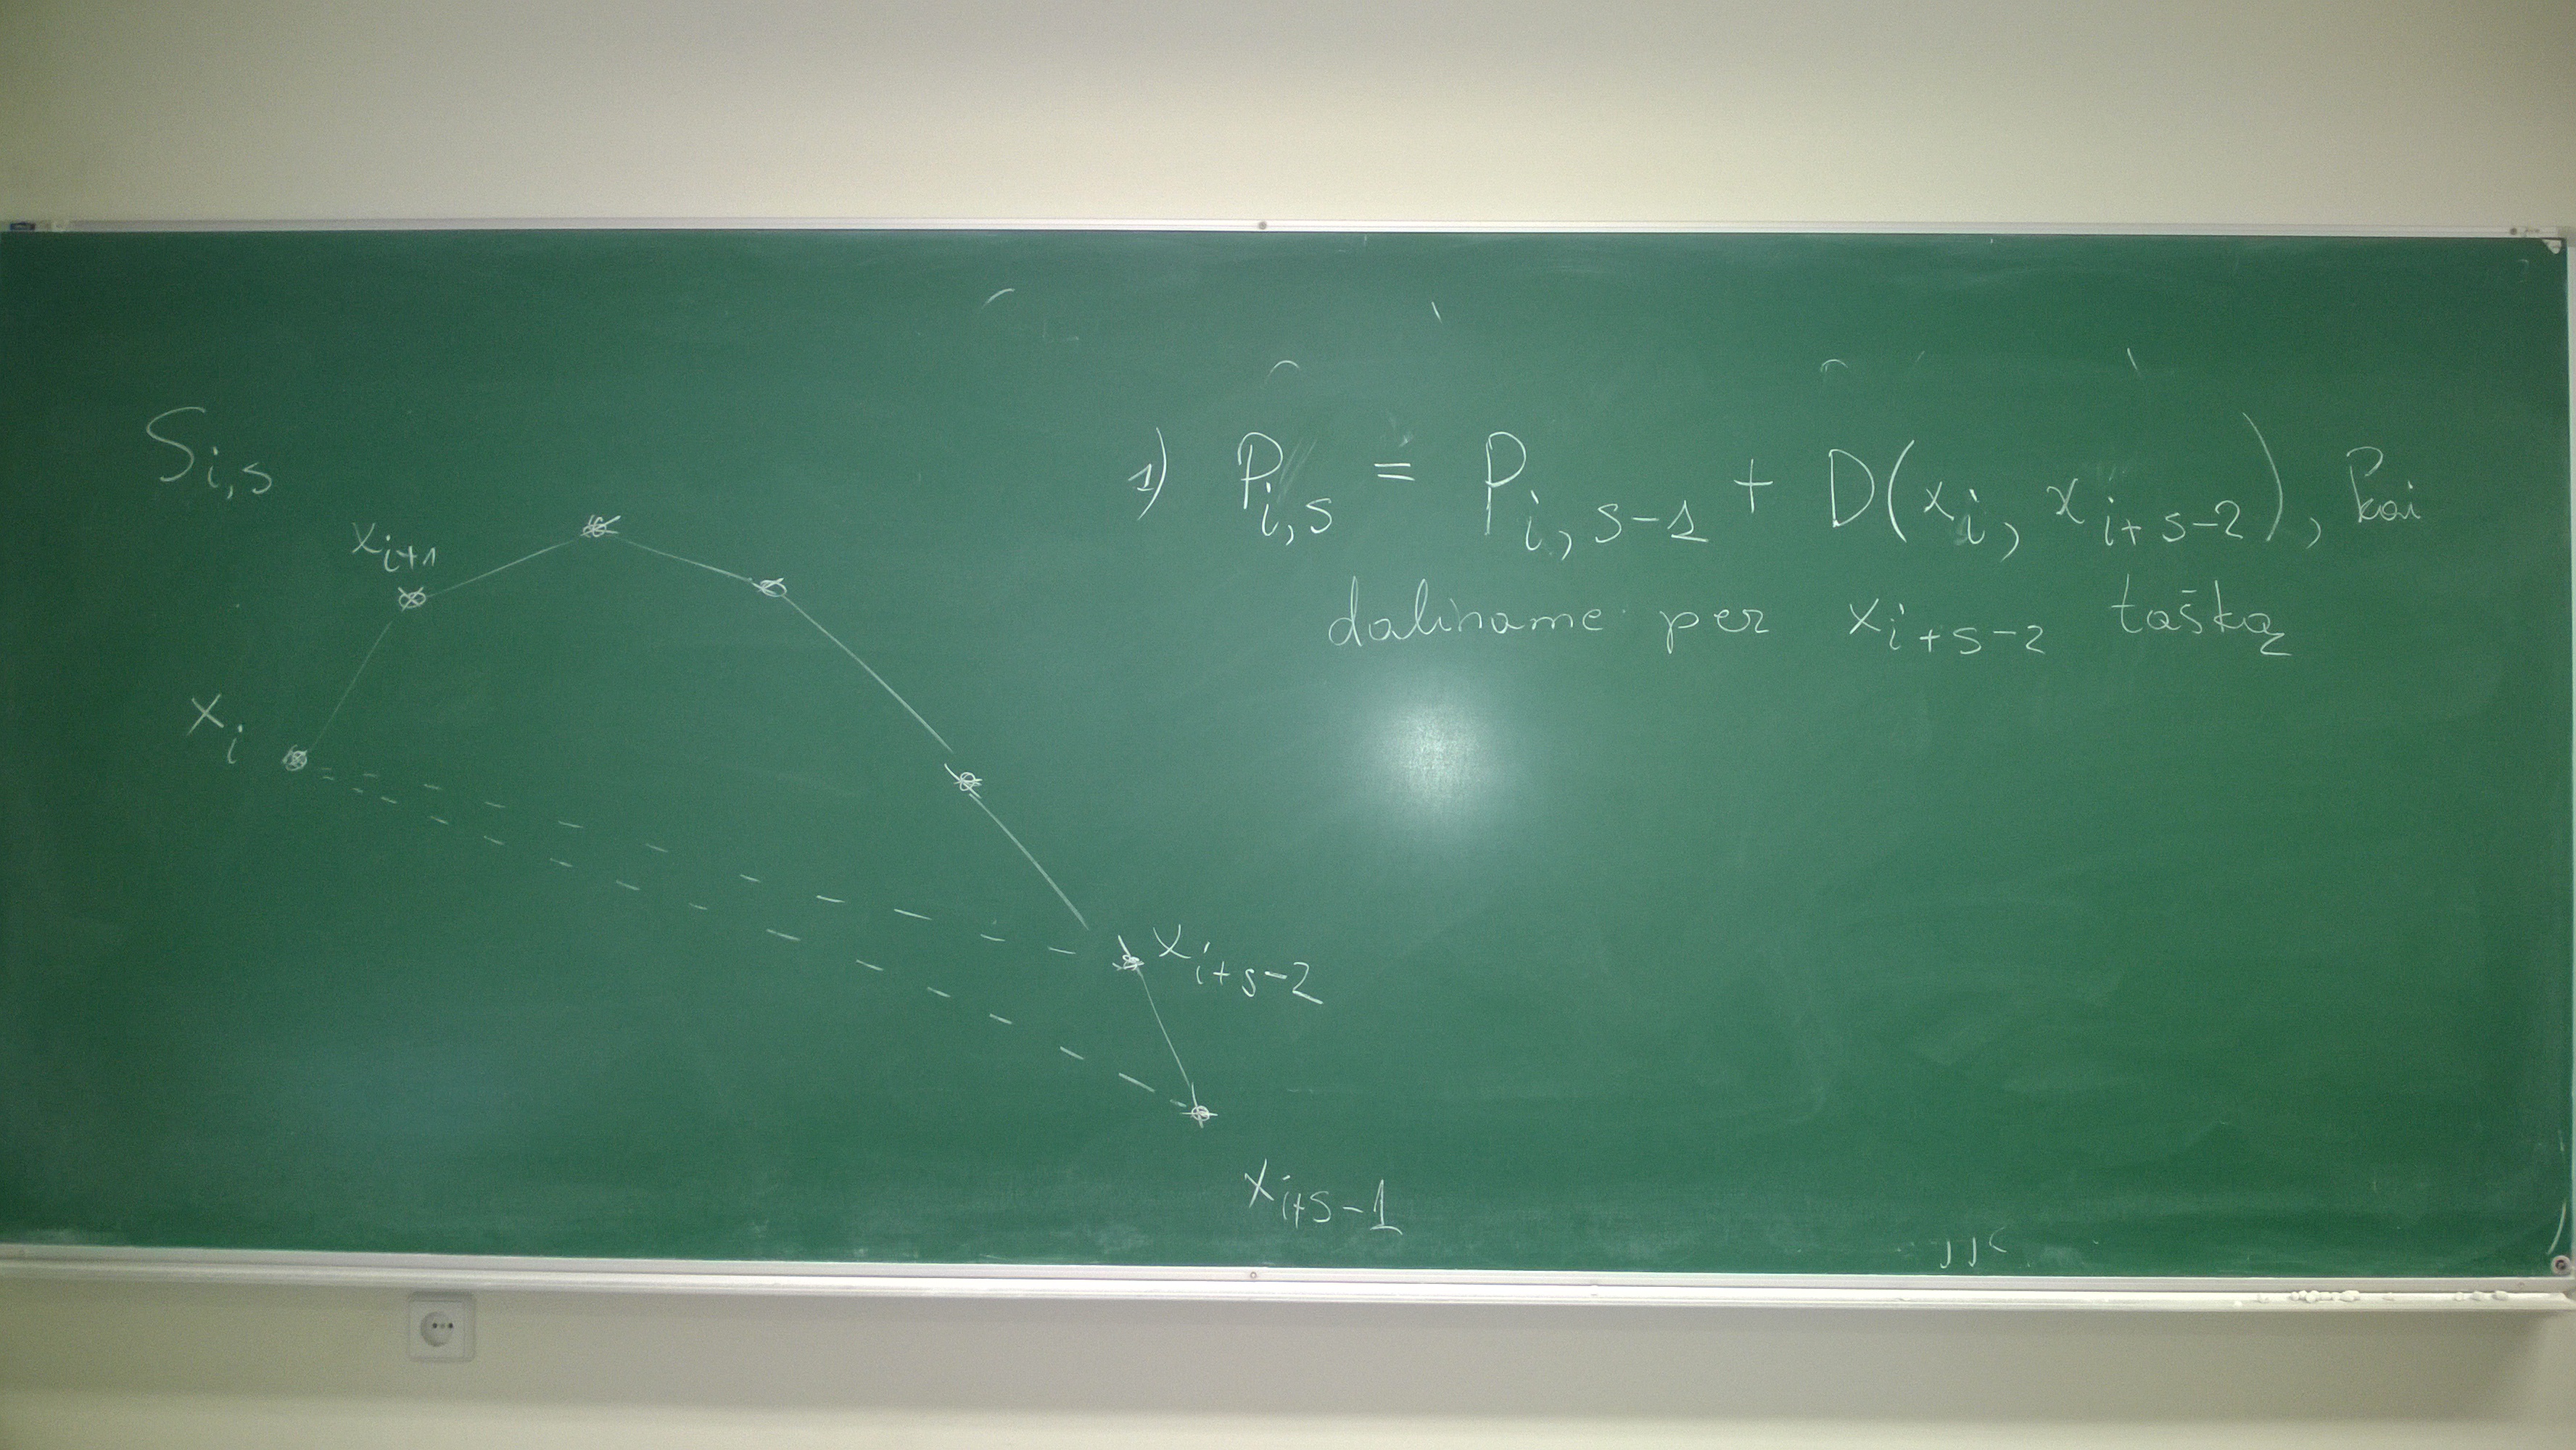 S_{i,s}
x_{i+1}
x_i
x_{i+s-2}
x_{i+s-1}
1) P_{i,s} = P_{i,s-1} + D(x_i, x_{i+s-2}), kai
daliname per x_{i+s-2} tašką